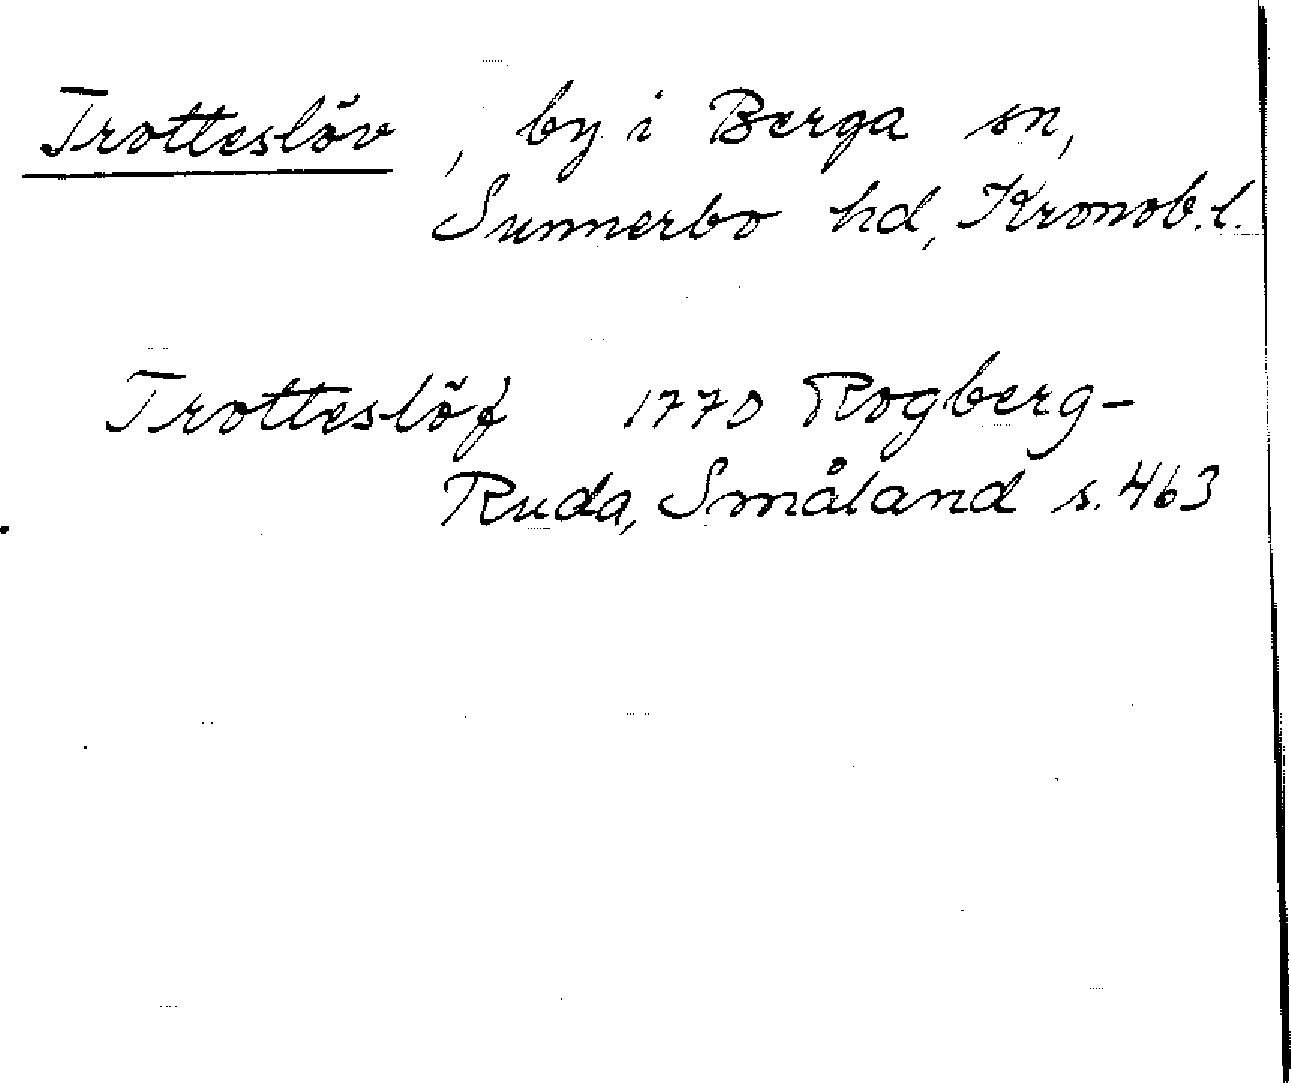 Trotteslöv, by i Berga sn,
Sunnerbo hd, Kronob.l.
Trotteslöf 1770 Rogberg-
Ruda, Småland s. 463